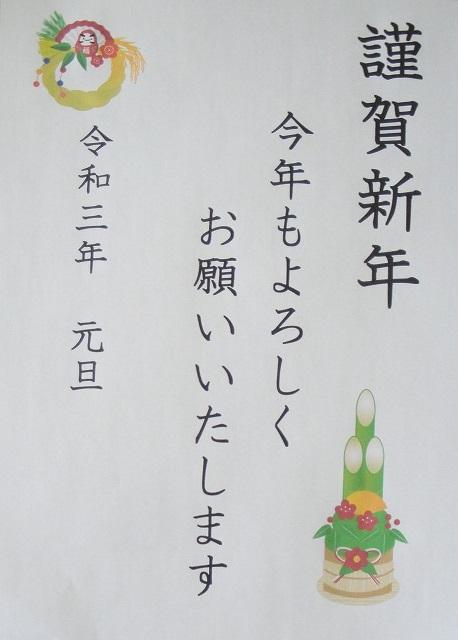 謹賀新年
今年もよろしく
お願いいたします
令和三年 元旦